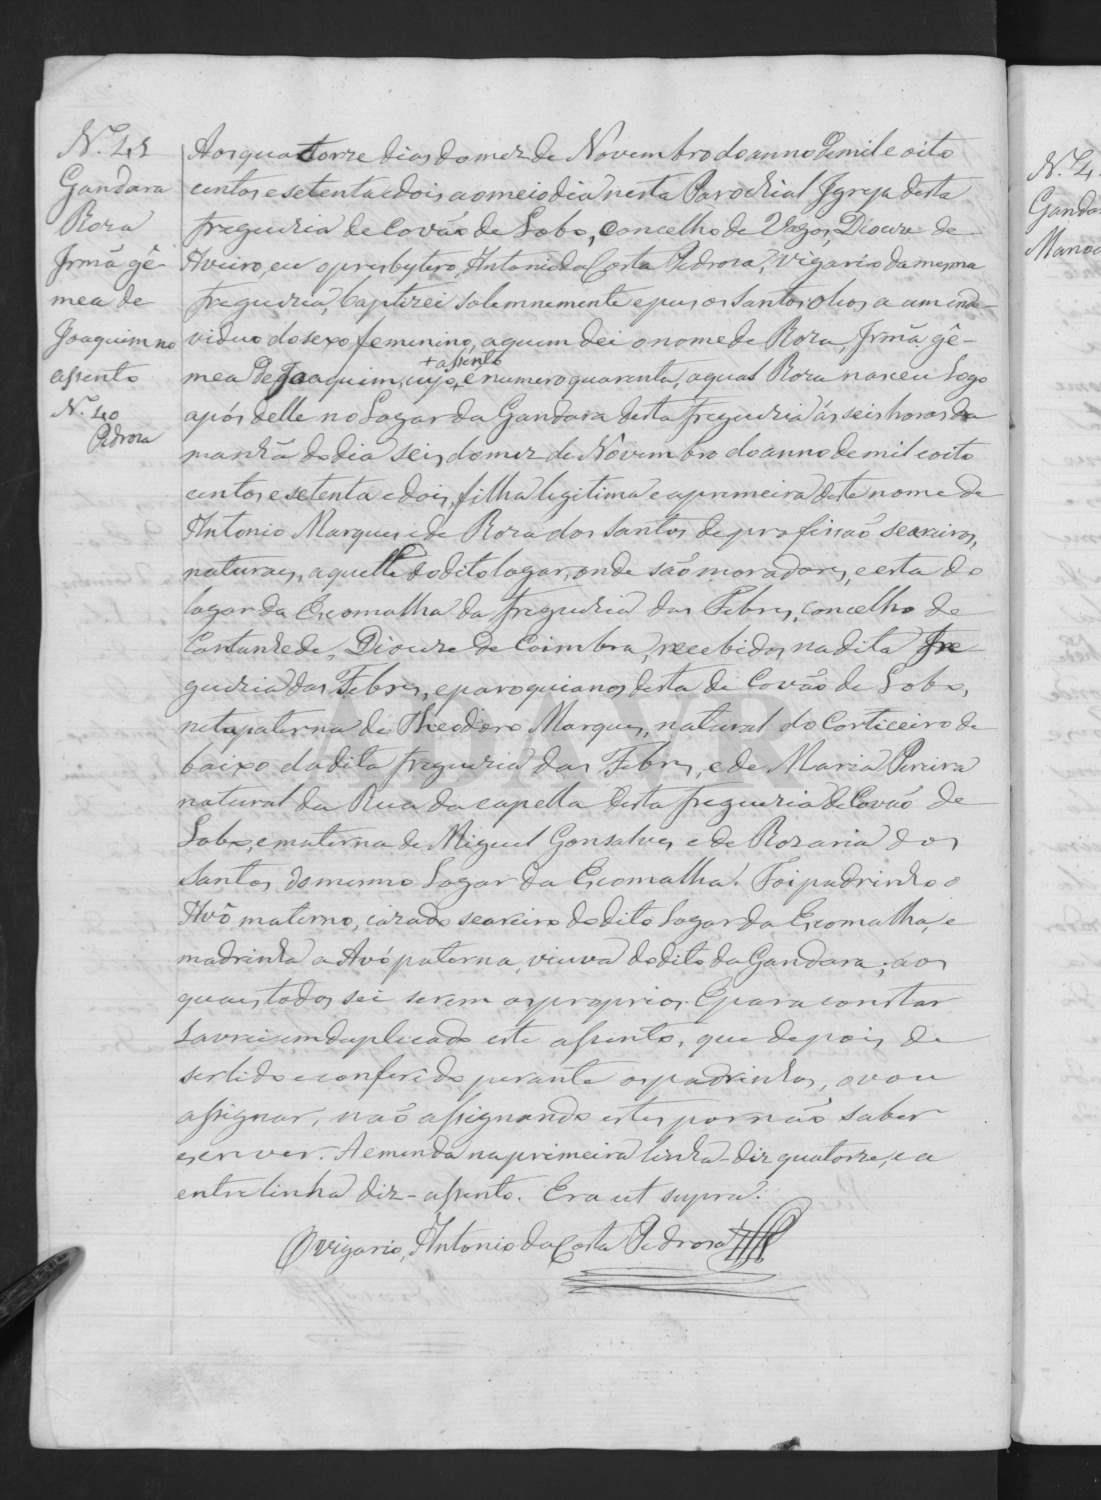 N.º 41
Gandara
Roza
Irmã gê-
mea de
Joaquim no
assento
N.º 40
Pedroza
Aos quatorze dias do mez de Novembro do anno de mil e oito
centos e setenta e dois, ao meio dia nesta Parochial Igreja desta
freguezia de Covão de Lobo, Concelho de Vagos, Diocese de
Aveiro, eu o presbytero, Antonio da Costa Pedroza, Vigario da mesma
freguezia, baptizei solemnemente e puz os Santos oleos a um indi-
viduo do sexo femenino, a quem dei o nome de Roza, Irmã gê-
+ assento
mea de Joaquim, cujo + é numero quarenta, a qual Roza nasceu logo
após delle no Logar da Gandara desta freguezia ás seis horas da
manhã do dia seis do mez de Novembro do anno de mil e oito
centos e setenta e dois, filha legitima e a primeira deste nome de
Antonio Marques e de Roza dos Santos de profissão seareiros,
naturaes, aquelle do dito logar, onde são moradores, e esta do
logar da Escomalha da freguezia das Febres, concelho de
Cantanhede, Diocese de Coimbra, recebidos na dita Fre-
guezia das Febres, e paroquianos desta de Covão de Lobo,
neta paterna de Theodoro Marques, natural do Corticeiro de
baixo da dita freguezia das Febres, e de Maria Pereira
natural da Rua da capella desta freguezia de Covão de
Lobo, e materna de Miguel Gonsalves e de Rozaria dos
Santos do mesmo Logar da Escomalha. Foi padrinho o
Avô materno, cazado seareiro do dito Logar da Escomalha, e
madrinha a Avó paterna, viuva do dito da Gandara; aos
quaes todos sei serem os proprios. E para constar
lavrei em duplicado este assento, que depois de
ser lido e conferido perante os padrinhos, o vou
assignar, não assignando estes por não saber
escrever. A emenda na primeira linha - diz quatorze, e a
entrelinha diz - assento. Era ut supra.
O vigario, Antonio da Costa Pedroza
N.º 4
Gandar
Manoe
ADAVR